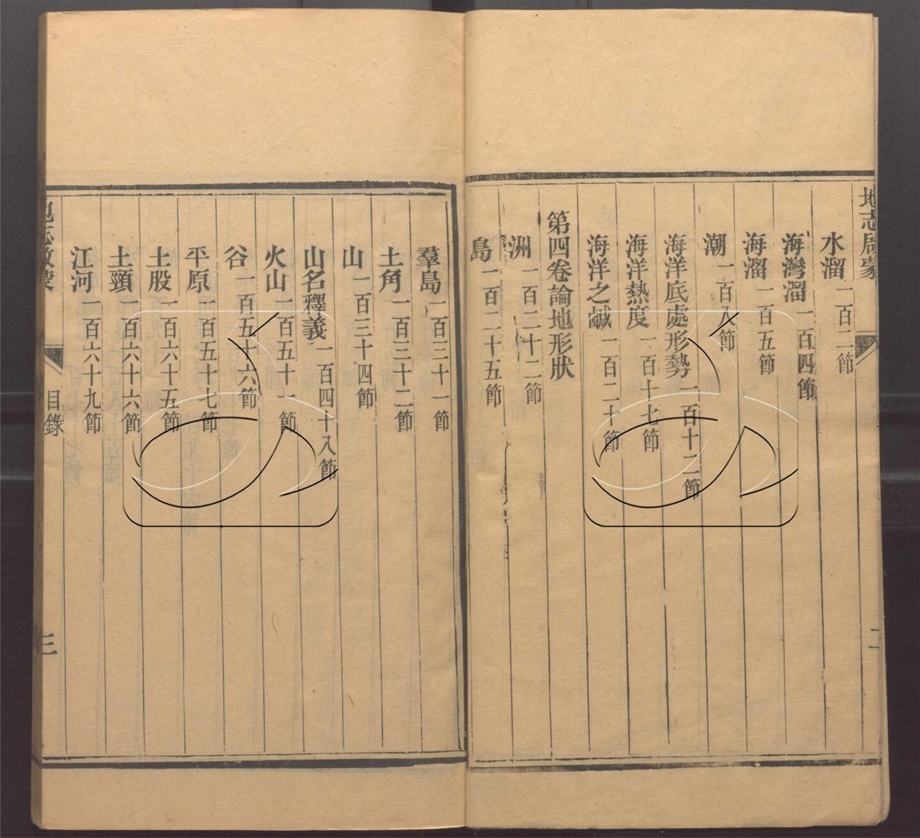 地志啟蒙
水溜 一百二節
海灣溜 一百四節
海溜 一百五節
潮 一百八節
海洋底處形勢 一百十二節
海洋熱度 一百十七節
海洋之鹹 一百二十節
第四卷論地形狀
洲 一百二十二節
島 一百二十五節
羣島 一百三十一節
土角 一百三十二節
山 一百三十四節
山名釋義 一百四十八節
火山 一百五十一節
谷 一百五十六節
平原 一百五十七節
土股 一百六十五節
土頸 一百六十六節
江河 一百六十九節
地志啟蒙
目錄
三